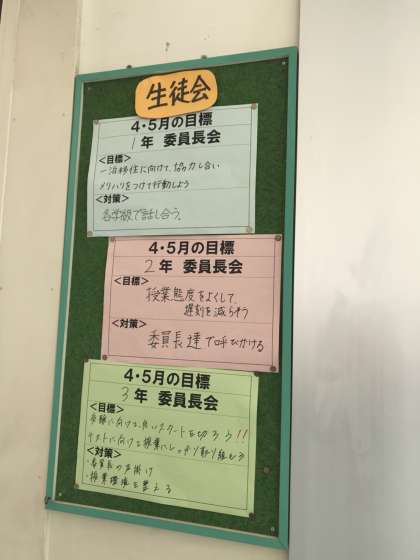 生徒会
4・5月の目標
1年 委員長会
<目標>
一泊移住に向けて、協力し合い
メリハリをつけて行動しよう
<対策>
各学級で話し合う。
4・5月の目標
2年 委員長会
<目標>
授業態度をよくして、
遅刻を減らそう
<対策>
委員長達で呼びかける
4・5月の目標
3年 委員長会
<目標>
受験に向けて、良いスタートを切ろう!!
テストに向けて授業にしっかり取り組もう
<対策>
・委員長の声掛け
・授業環境を整える